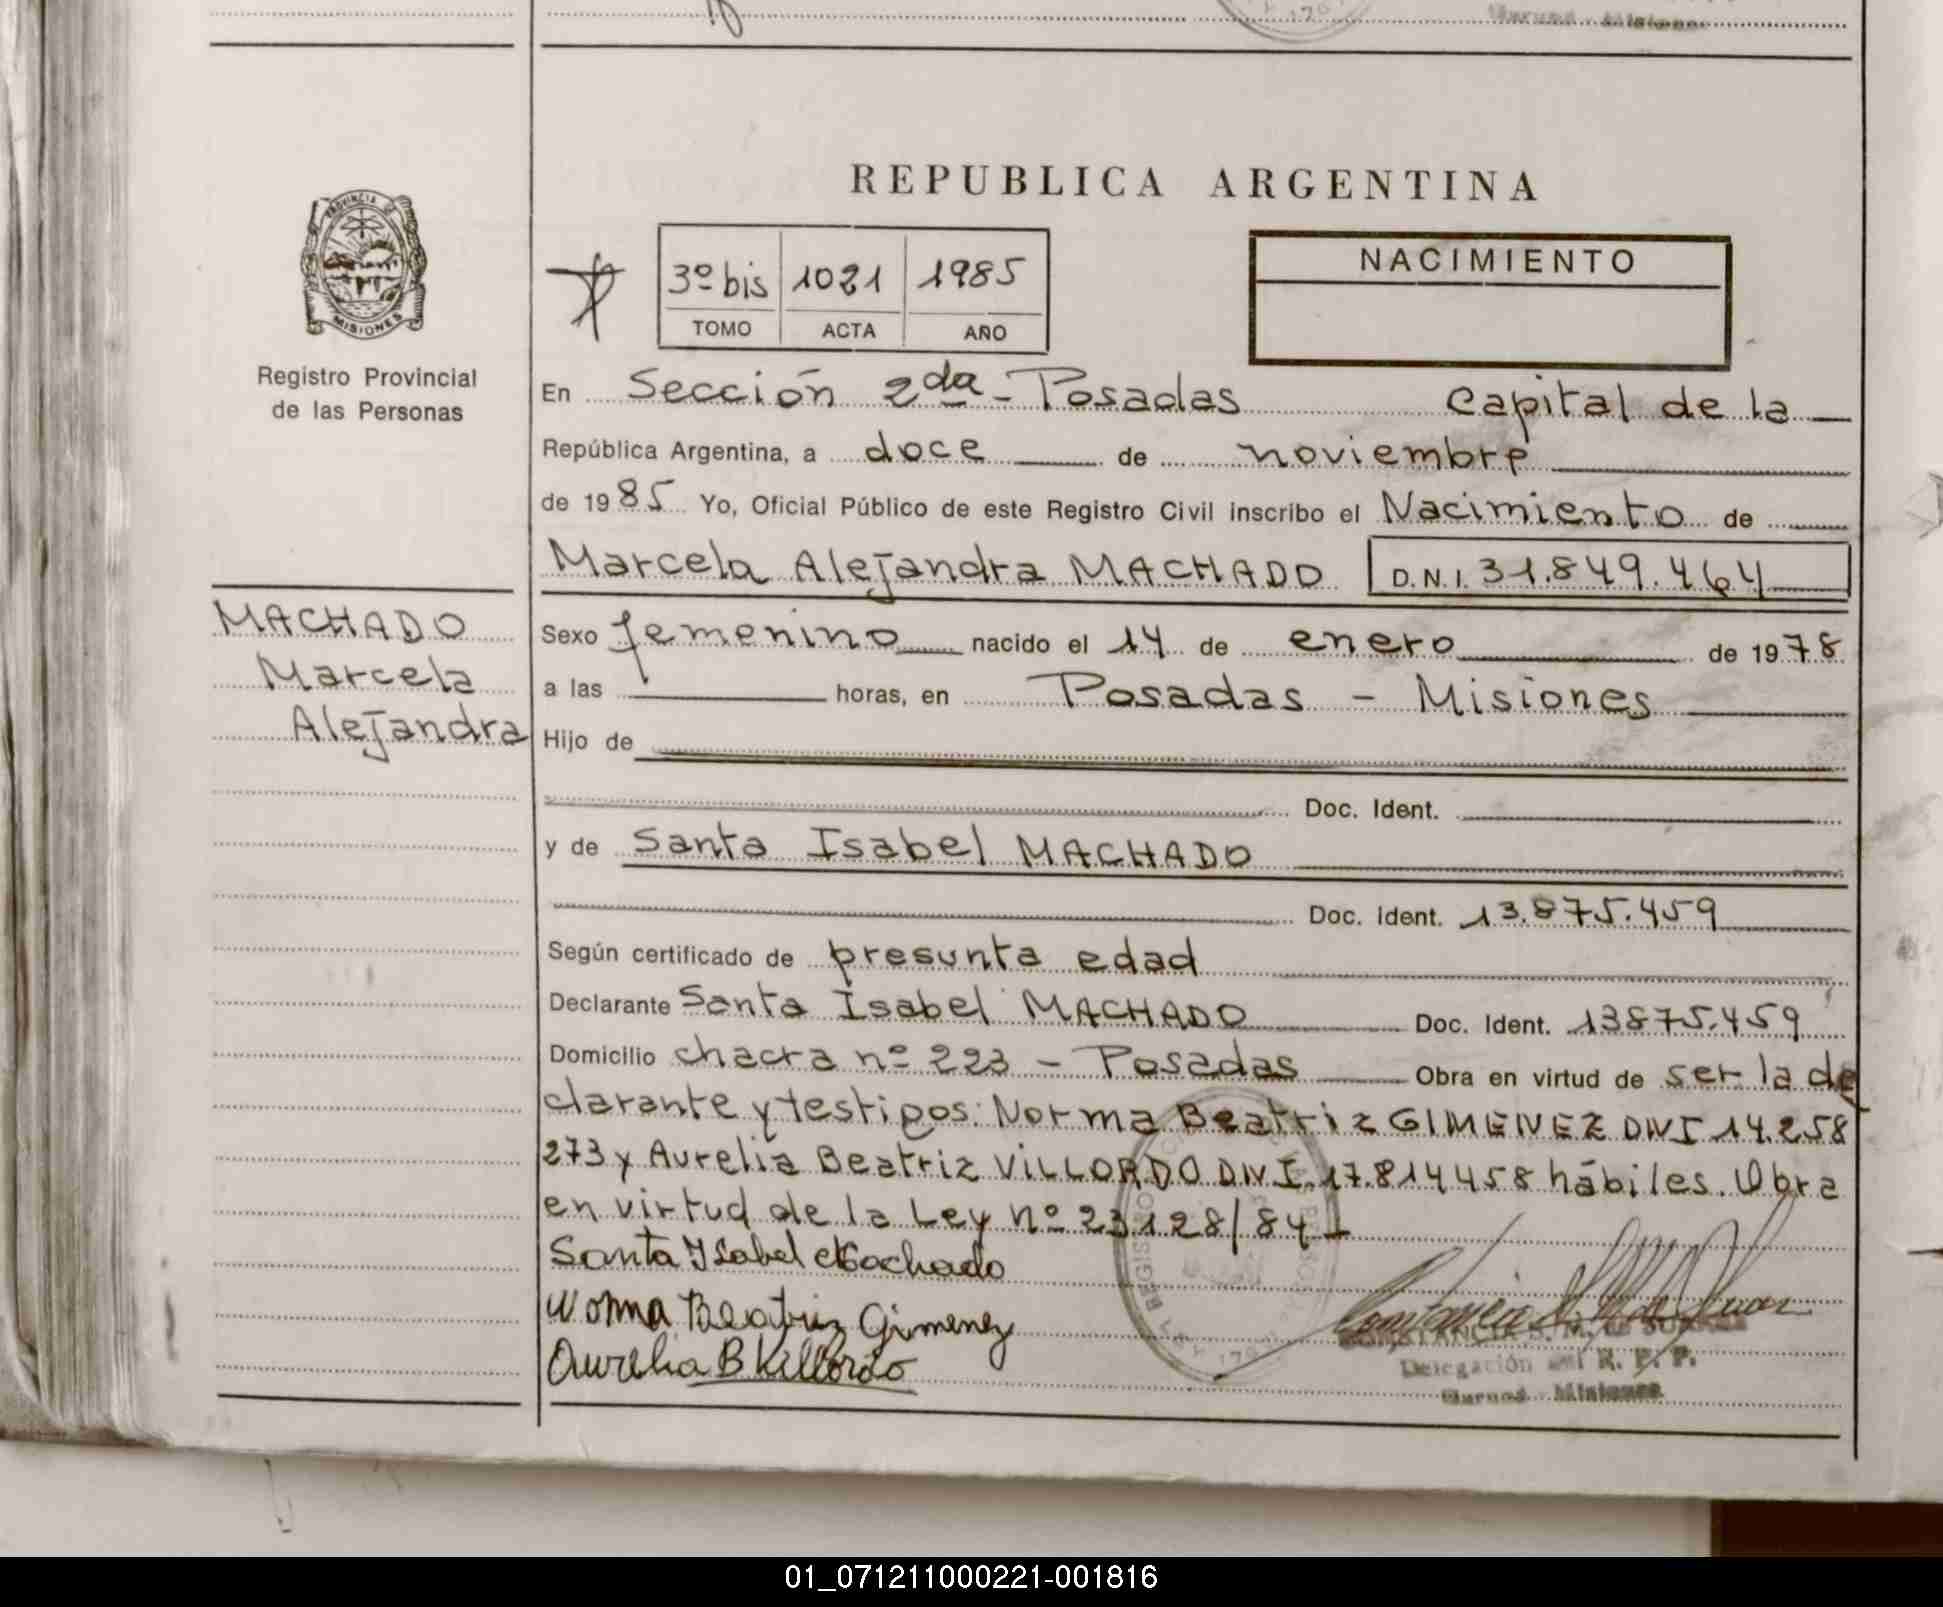 REPUBLICA ARGENTINA
PROVINCIA DE
MISIONES
Registro Provincial
de las Personas
3º bis 1021 1985
TOMO ACTA AÑO
NACIMIENTO
En Sección 2da - Posadas Capital de la
República Argentina, a doce de noviembre
de 1985 Yo, Oficial Público de este Registro Civil inscribo el Nacimiento de
Marcela Alejandra MACHADO D.N.I. 31.849.464
MACHADO
Marcela
Alejandra
Sexo femenino nacido el 14 de enero de 1978
a las horas, en Posadas - Misiones
Hijo de
Doc. Ident.
y de Santa Isabel MACHADO
Doc. Ident. 13.875.459
Según certificado de presunta edad
Declarante Santa Isabel MACHADO Doc. Ident. 13875.459
Domicilio chacra nº 223 - Posadas Obra en virtud de ser la de
clarante y testigos: Norma Beatriz GIMENEZ DNI 14.258
273 y Aurelia Beatriz VILLORDO DNI. 17.814458 hábiles. Obra
en virtud de la Ley nº 23128/84
Santa Isabel Machado
Norma Beatriz Gimenez
Aurelia B Villordo
CONSTANCIA S. M. de
Delegación del R. P. P.
Misiones
01_071211000221-001816